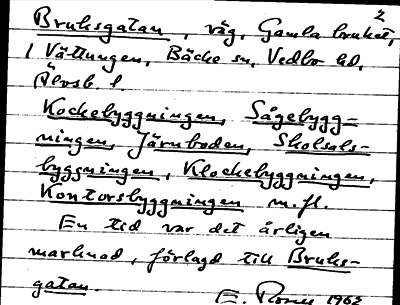 2
Bruksgatan, väg, Gamla bruket,
i Vättungen, Bäcke sn, Vedbo hd,
Älvsb. l
Kockebyggningen, Sågebygg-
ningen, Järnboden, Skolsals-
byggningen, Klockebyggningen,
Kontorsbyggningen m.fl.
En tid var det årligen
marknad, förlagd till Bruks-
gatan.
E. 1962